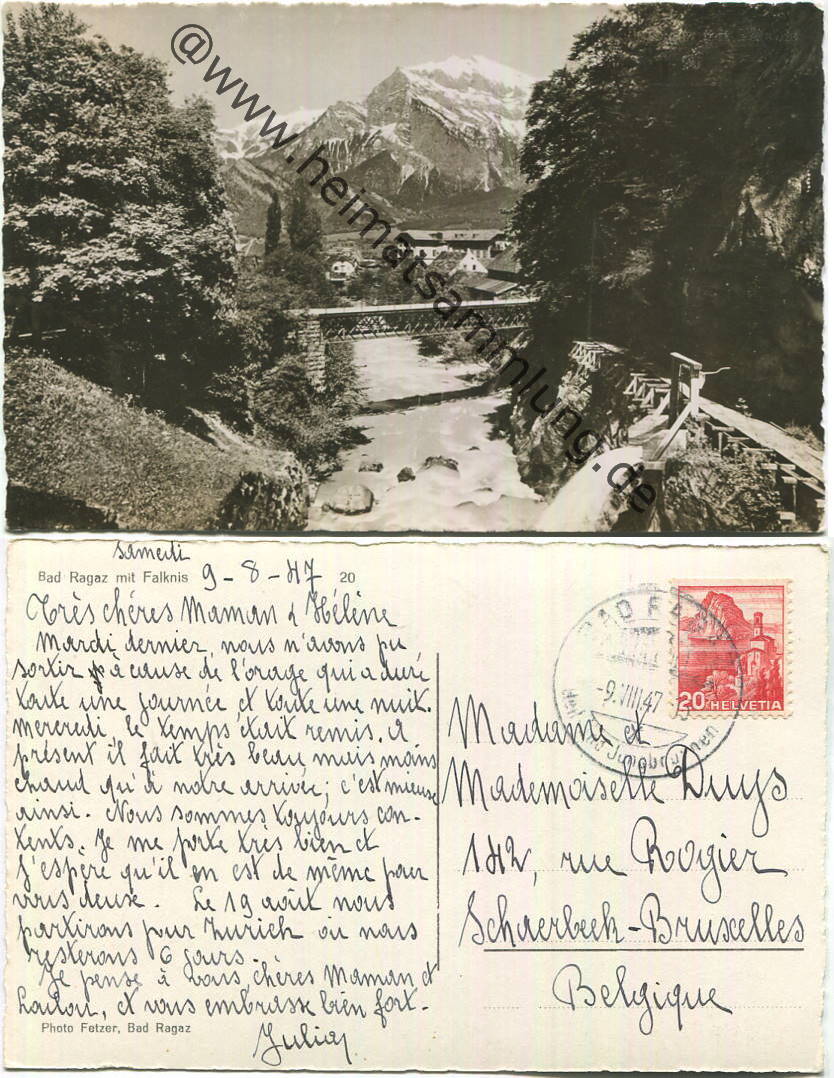 @www.heimatsammlung.de
samedi
Bad Ragaz mit Falknis 9-8-47 20
Très chéres Maman & Hélène
Mardi dernier, nous n'avons pu
sortir à cause de l'orage qui a duré
toute une journée et toute une nuit.
Mercredi, le temps était remis. A
présent il fait très beau, mais moins
chaud qu'à notre arrivée; c'est mieux
ainsi. Nous sommes toujours con-
tents. Je me porte très bien et
j'espère qu'il en est de même pour
vous deux. Le 19 août nous
partirons pour Zurich où nous
resterons 6 jours.
Je pense à vous, chères Maman et
Loulou, et vous embrasse bien fort.
Julia
Photo Fetzer, Bad Ragaz
BAD RAGAZ
-9.VIII.47
20 HELVETIA
Madame et
Mademoiselle Duys
142, rue Rogier
Schaerbeek-Bruxelles
Belgique